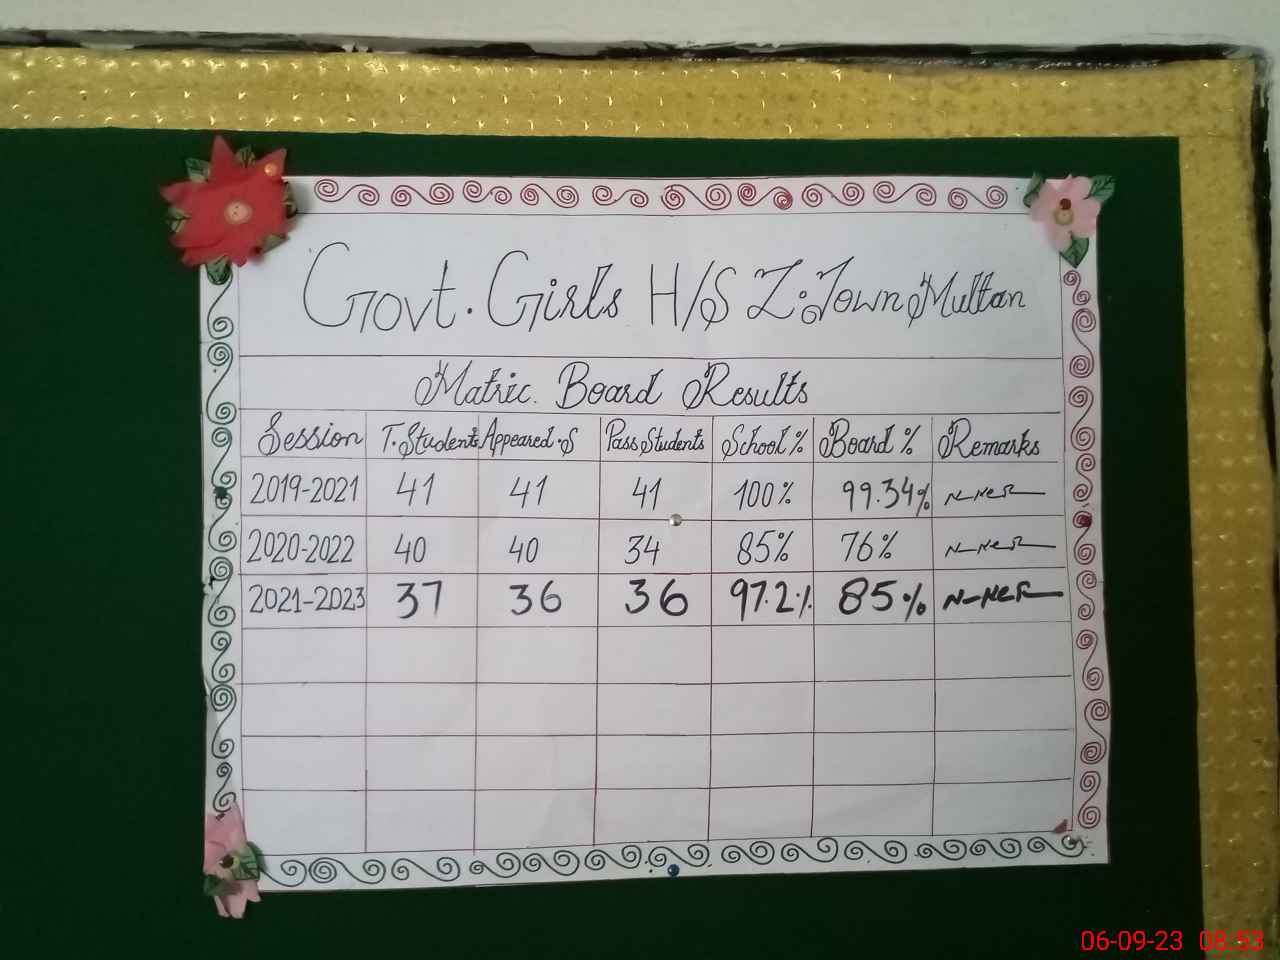 Govt. Girls H/S Z. Town Multan
Matric. Board Results
Session T. Students Appeared. S Pass Students School % Board % Remarks
2019-2021 41 41 41 100% 99.34%
2020-2022 40 40 34 85% 76%
2021-2023 37 36 36 97.2% 85%
06-09-23 08:53